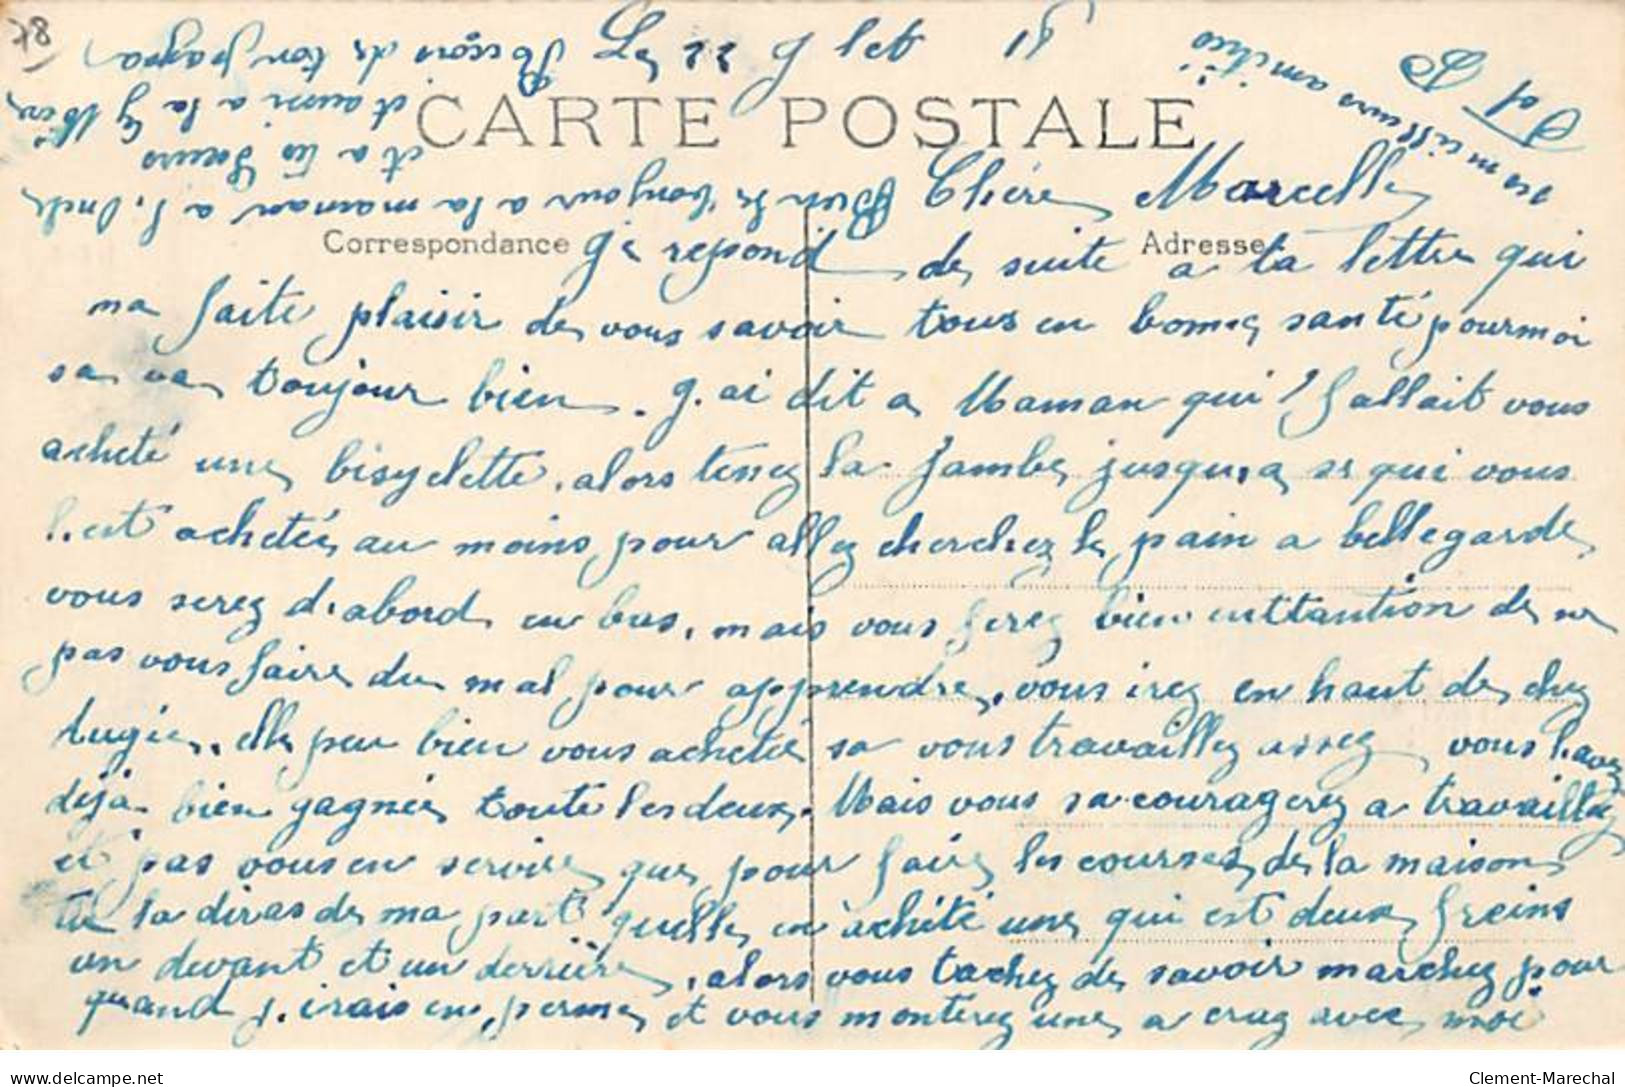 78
Le 22 Jlet 15
CARTE POSTALE
Chére Marcelle
Correspondance
Adresse
Je repond de suite a ta lettre qui
ma faite plaisir de vous savoir tous en bonne santé pourmoi
sa va toujour bien. J.ai dit a Maman qui l fallait vous
acheté une bisyclette. alors tenez la jambe jusqu,a se qui vous
l.est achetée au moins pour allez cherchez le pain a bellegarde
vous serez d.abord en bas. mais vous ferez bien attantion de ne
pas vous faire du mal pour apprendre. vous irez en haut de chez
Lugie. elle peu bien vous acheté sa vous travaillez assez vous l'avez
déja bien gagnée toute les deux. Mais vous sa couragerez a travaillez
et pas vous en servire que pour faire les courses de la maison
tu la diras de ma part quelle en acheté une qui est deux freins
un devant et un derriére. alors vous tachez de savoir marchez pour
quand j.irais en perme et vous monterez une a crag avec moi
Bien le bonjour a la maman a l. Oncle
et a tes Soeurs
et aussi a la Mére
Reçois de ton papa
ses meilleurs amitiés